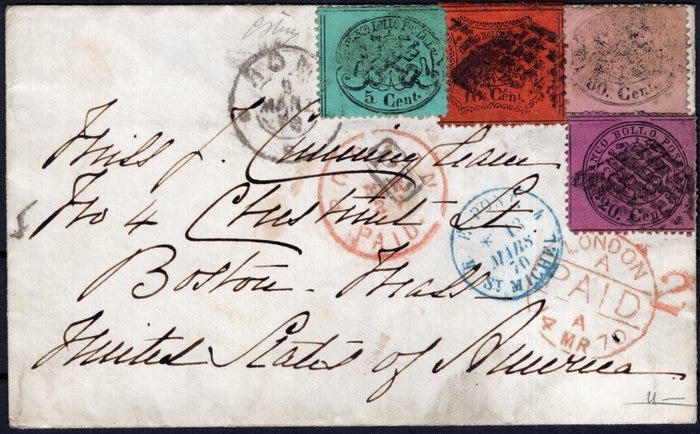 5 Cent.
10 Cent.
80 Cent.
FRANCO BOLLO POSTALE
20 Cent.
ROMA
MAR
Miss J. Cunningham
No 4 Chestnut St.
Boston. Mass
United States of America
PAID
MARS
70
ST MICHEL
LONDON
A
PAID
A
MR 70
2